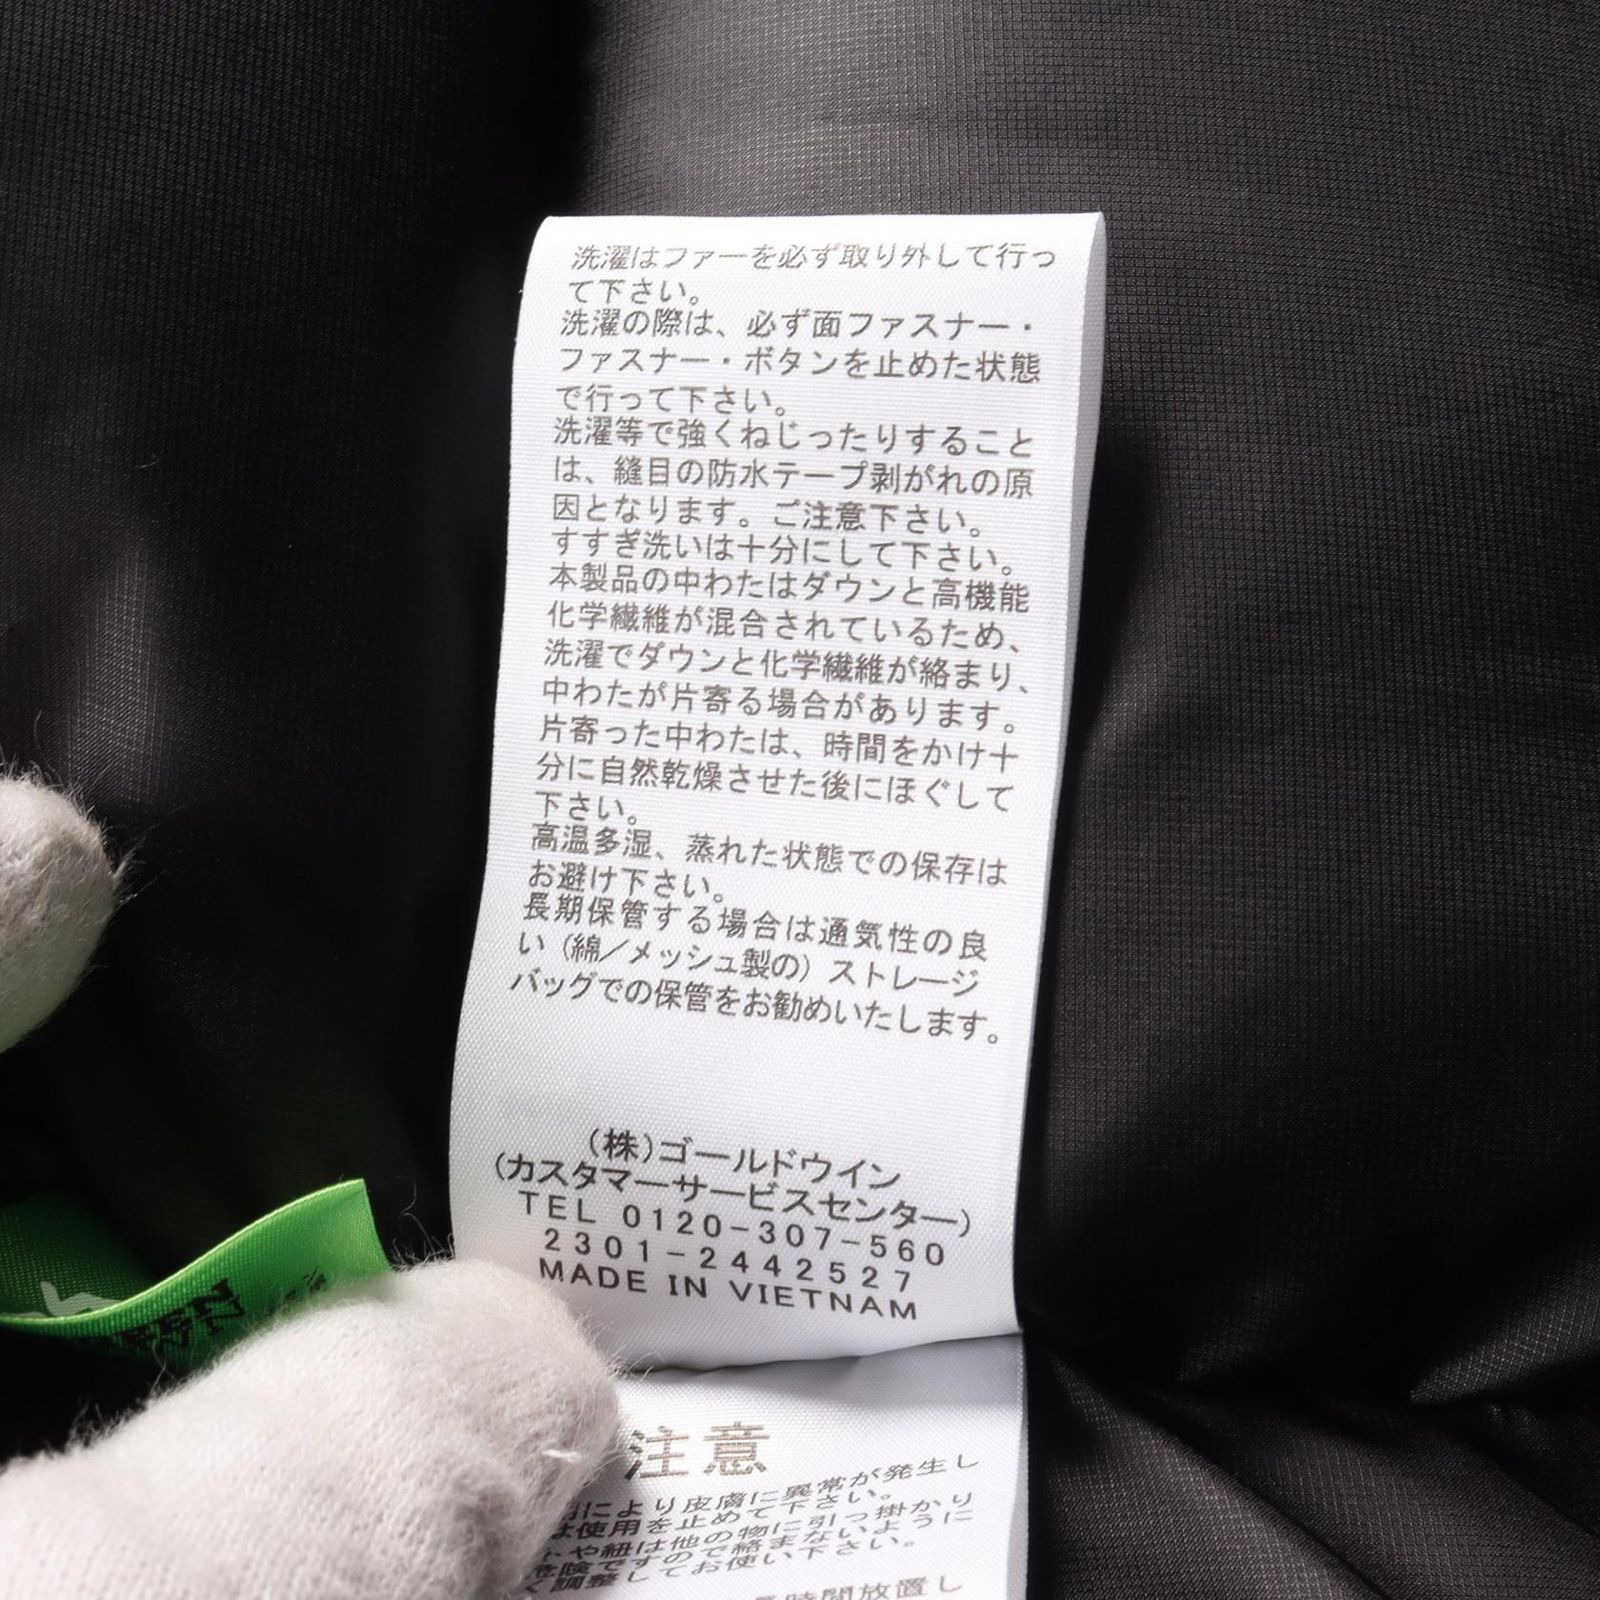 洗濯はファーを必ず取り外して行っ
て下さい。
洗濯の際は、必ず面ファスナー・
ファスナー・ボタンを止めた状態
で行って下さい。
洗濯等で強くねじったりすること
は、縫目の防水テープ剥がれの原
因となります。ご注意下さい。
すすぎ洗いは十分にして下さい。
本製品の中わたはダウンと高機能
化学繊維が混合されているため、
洗濯でダウンと化学繊維が絡まり、
中わたが片寄る場合があります。
片寄った中わたは、時間をかけ十
分に自然乾燥させた後にほぐして
下さい。
高温多湿、蒸れた状態での保存は
お避け下さい。
長期保管する場合は通気性の良
い(綿/メッシュ製の)ストレージ
バッグでの保管をお勧めいたします。
(株)ゴールドウイン
(カスタマーサービスセンター)
TEL 0120-307-560
2301-2442527
MADE IN VIETNAM
注意
により皮膚に異常が発生し
は使用を止めて下さい。
や紐は他の物に引っ掛かり
危険ですので絡まないように
調整してお使い下さい。
時間放置し